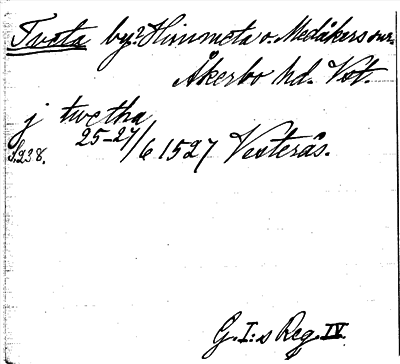 Tveta by? Himmeta o. Medåkers snr.
Åkerbo hd. Vst.
j twetha
25-27/6 1527 Vesterås.
S.238.
G. I:s Reg. IV